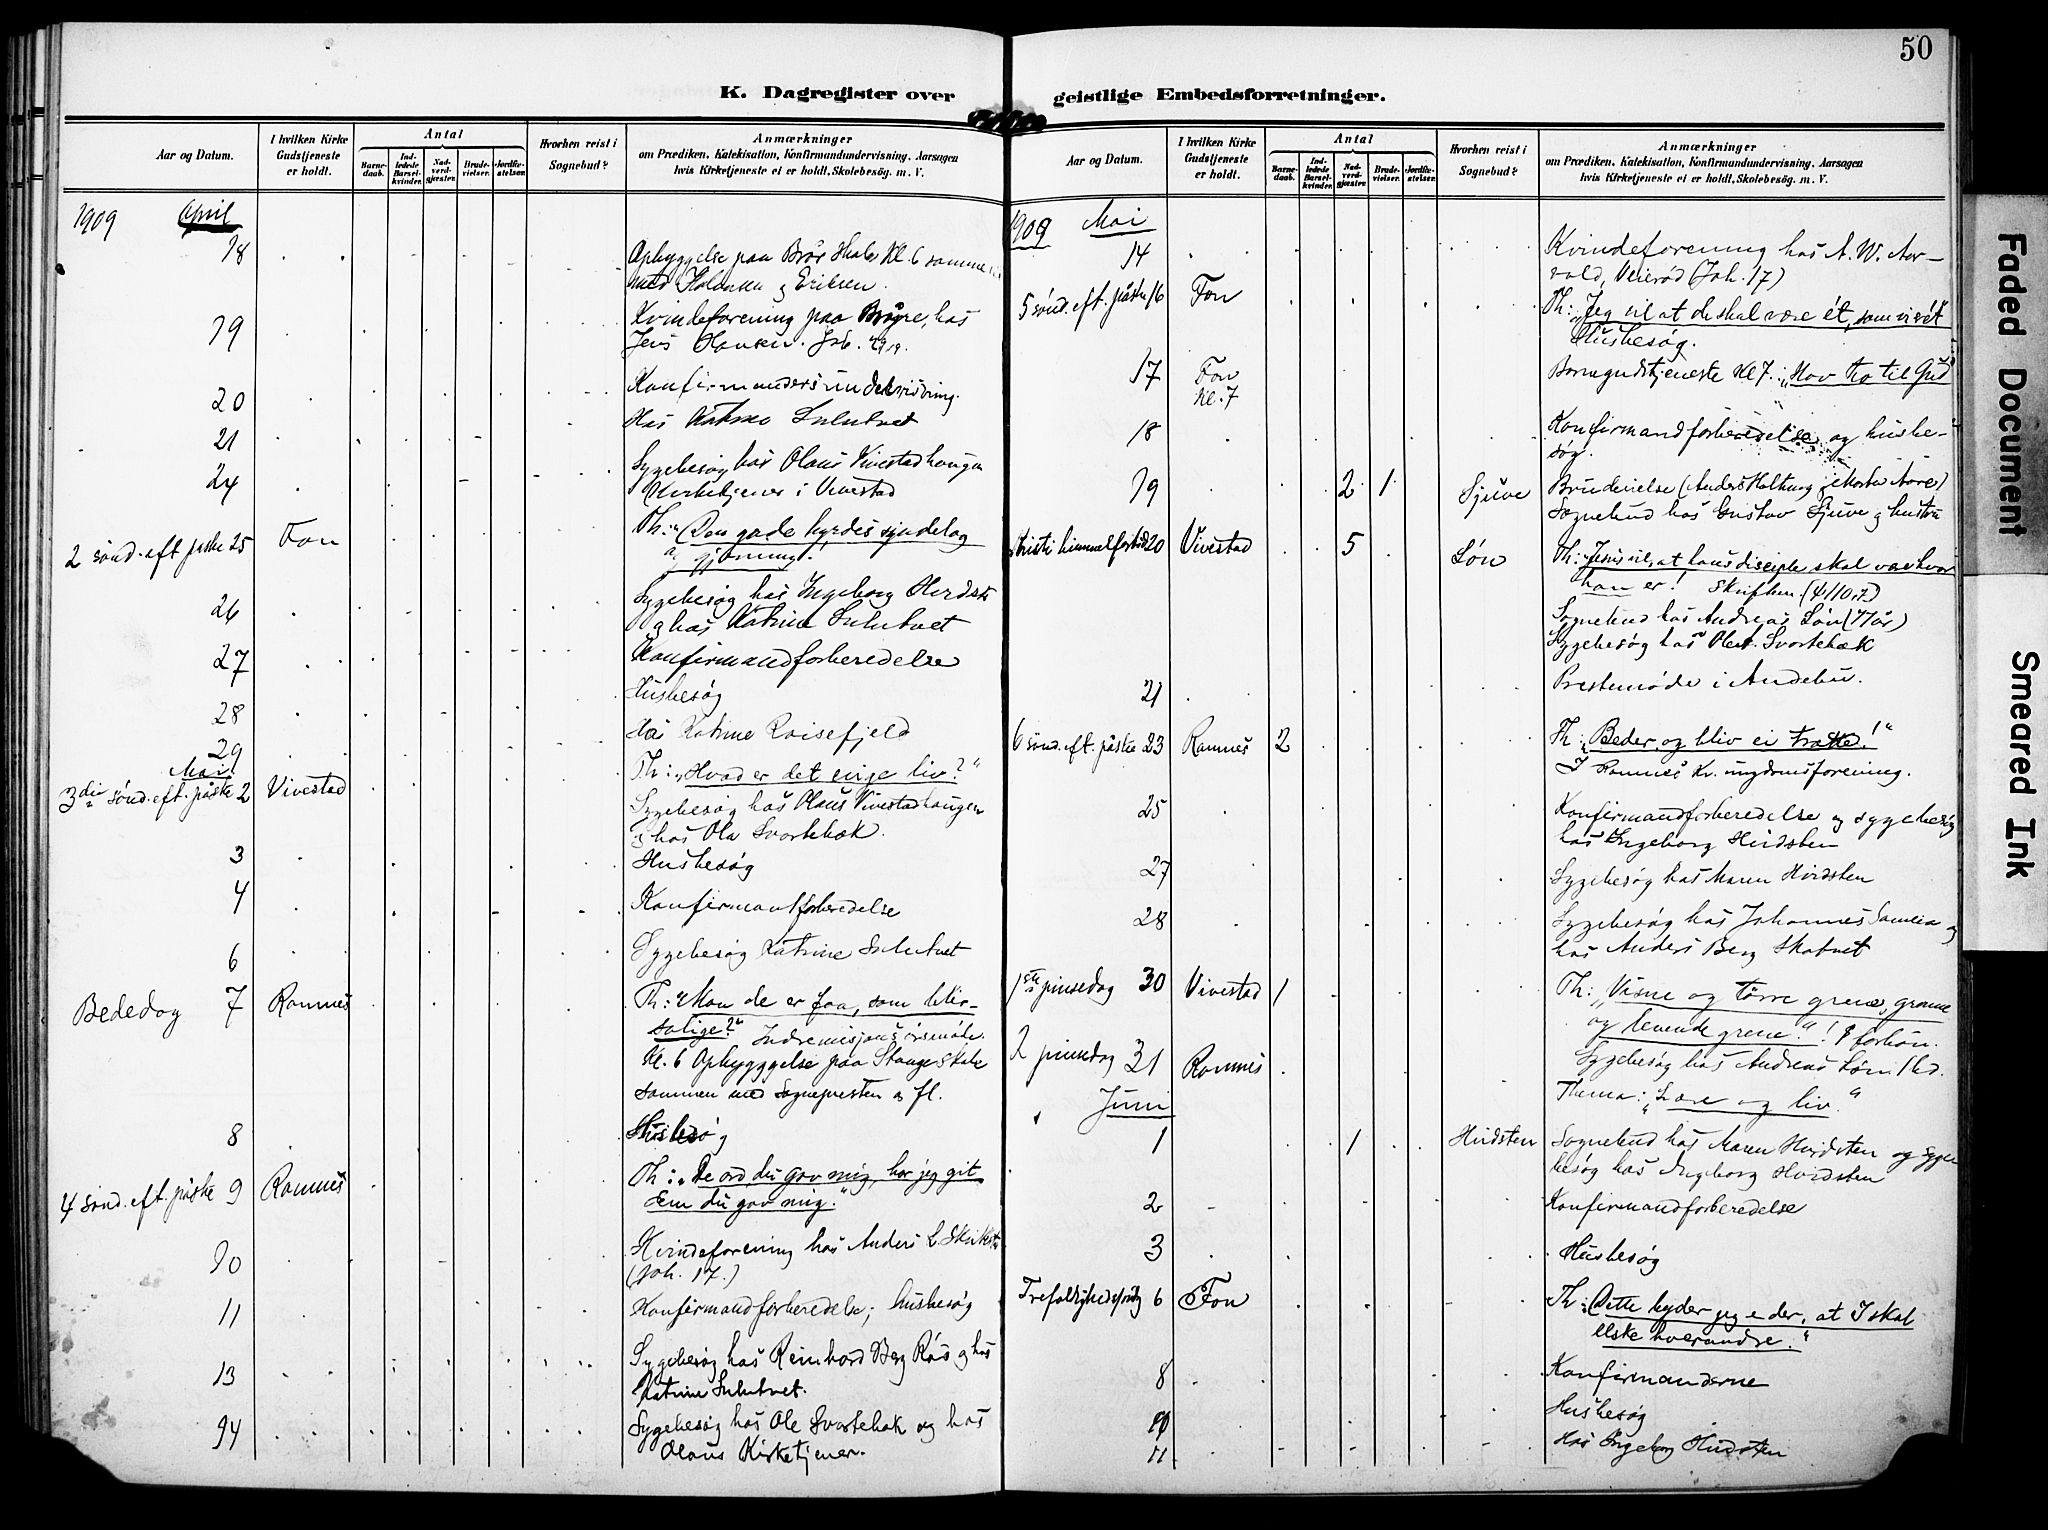 50
K. Dagregister over geistlige Embedsforretninger.
Aar og Datum.
I hvilken Kirke Gudstjeneste er holdt.
Antal
Barne-daab.
Ind-ledede Barsel-kvinder.
Nad-verd-gjester.
Brude-vielser.
Jordfæ-stelser.
Hvorhen reist i Sognebud?
Anmærkninger
om Prædiken, Katekisation, Konfirmandundervisning, Aarsagen
hvis Kirketjeneste ei er holdt, Skolebesög, m. V.
1909 April
18 Opbyggelse paa Skole Kl. 6 sammen
med & Eriksen.
19 Kvindeforening paa, hos
Jens Hansen.
20 Konfirmandundervisning.
21 Hos Katrine
24 Sygebesøg hos Olaus Vivestadhaugen
Kirketjener i Vivestad
2 sønd. eft. påske 25 Fon Th: "Den gode hyrdes sindelag
og gjerning!
26 Sygebesøg hos Ingeborg
& hos Katrine
27 Konfirmandforberedelse
28 Husbesøg
29 Hos Katrine
Mai
3die sønd. eft. påske 2 Vivestad Th: "Hvad er det evige liv?"
Sygebesøg hos Olaus Vivestadhaugen
& hos Ole Svartebæk.
3 Husbesøg
4 Konfirmantforberedelse
6 Sygebesøg Katrine
Bededag 7 Ramnes Th: "Mon de er faa, som blir
salige?" Indremisjons årsmøte.
Kl. 6 Opbygggelse paa Stange Skole
sammen med Sognepresten & fl.
8 Husbesøg
4 sønd. eft. påske 9 Ramnes Th: "De ord, du gav mig, har jeg git
dem du gav mig."
10 Kvindeforening hos Anders L.
(Joh. 17.)
11 Konfirmandforberedelse; husbesøg
13 Sygebesøg hos Reinhard Berg & hos
Katrine
14 Sygebesøg hos Ole Svartebæk og hos
Olaus Kirketjener.
Aar og Datum.
I hvilken Kirke Gudstjeneste er holdt.
Antal
Barne-daab.
Ind-ledede Barsel-kvinder.
Nad-verd-gjester.
Brude-vielser.
Jordfæ-stelser.
Hvorhen reist i Sognebud?
Anmærkninger
om Prædiken, Katekisation, Konfirmandundervisning, Aarsagen
hvis Kirketjeneste ei er holdt, Skolebesög, m. V.
1909 Mai
14 Kvindeforening hos A. W. Aar-
vold, Veierød (Joh. 17)
5 sønd. eft. påske 16 Fon Th: "Jeg vil at de skal være ét, som vi er ét"
Husbesøg.
17 Fon Kl. 7 Barnegudstjeneste Kl 7. "Hav tro til Gud"
18 Konfirmandforberedelse og husbe-
søg.
19 2 1 Sjuve Brudevielse (Anders
Sognebud hos Gustav Sjuve & hustru
Kristi himmelfartsd 20 Vivestad 5 Løn Th: "Jesus vil, at hans disciple skal være hvor
han er!
Sognebud hos Andreas Løn
Sygebesøg hos Svartebæk
21 Prestemøde i Andebu.
6 sønd. eft. påske 23 Ramnes 2 Th: "Beder, og bliv ei trætte!"
I Ramnes Kr. ungdomsforening.
25 Konfirmandforberedelse og sygebesøg
hos Ingeborg Hvidsten
27 Sygebesøg hos Maren Hvidsten
28 Sygebesøg hos Johannes og
hos Anders Berg
1ste pinsedag 30 Vivestad 1 Th: "Visne og tørre grene, grønne
og levende grene."!
Sygebesøg hos Andreas Løn
2 pinsedag 31 Ramnes Thema: "Lære og liv."
Juni
1 1 Hvidsten Sognebud hos Maren Hvidsten og syge
besøg hos Ingeborg Hvidsten
2 Konfirmandforberedelse
3 Husbesøg
6 Fon Th: "Dette byder jeg eder, at I skal
elske hverandre."
8 Konfirmanderne
10 Husbesøg
11 Hos Ingeborg Hvidsten
Faded Document
Smeared Ink